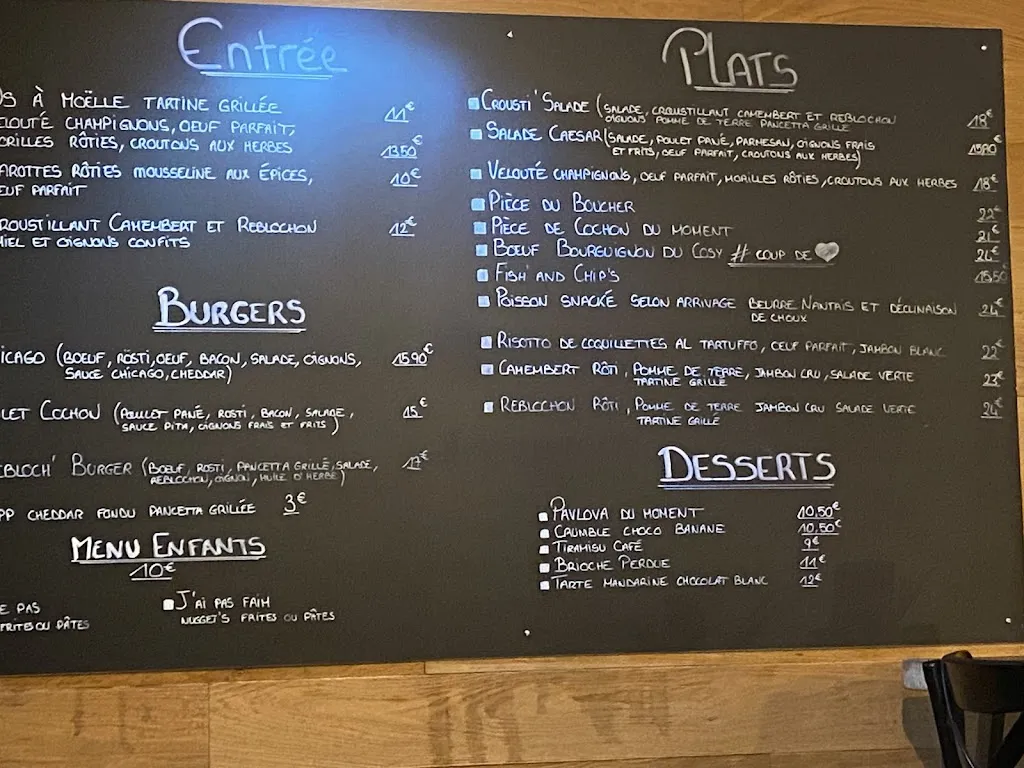 Entrée
OS À MOËLLE TARTINE GRILLÉE 11€
ELOUTÉ CHAMPIGNONS, OEUF PARFAIT,
ORILLES RÔTIES, CROUTONS AUX HERBES 13,50€
AROTTES RÔTIES MOUSSELINE AUX ÉPICES, 10€
EUF PARFAIT
ROUSTILLANT CAMEMBERT ET REBLOCHON 12€
MIEL ET OIGNONS CONFITS
BURGERS
ICAGO (BOEUF, RÖSTI, OEUF, BACON, SALADE, OIGNONS, 15,90€
SAUCE CHICAGO, CHEDDAR)
LET COCHON (POULET PANÉ, ROSTI, BACON, SALADE, 15€
SAUCE PITA, OIGNONS FRAIS ET FRITS)
EBLOCH' BURGER (BOEUF, ROSTI, PANCETTA GRILLÉ, SALADE, 17€
REBLOCHON, OIGNON, HUILE D'HERBE)
PP CHEDDAR FONDU PANCETTA GRILLÉE 3€
MENU ENFANTS
10€
E PAS
FRITES OU PÂTES
J'AI PAS FAIM
NUGGET'S FRITES OU PÂTES
PLATS
CROUSTI'SALADE (SALADE, CROUSTILLANT CAMEMBERT ET REBLOCHON 18€
OIGNONS POMME DE TERRE PANCETTA GRILLÉ
SALADE CAESAR (SALADE, POULET PANÉ, PARMESAN, OIGNONS FRAIS 15,90€
ET FRITS, OEUF PARFAIT, CROUTONS AUX HERBES)
VELOUTÉ CHAMPIGNONS, OEUF PARFAIT, MORILLES RÔTIES, CROUTONS AUX HERBES 18€
PIÈCE DU BOUCHER 22€
PIÈCE DE COCHON DU MOMENT 21€
BOEUF BOURGUIGNON DU COSY # COUP DE 24€
FISH' AND CHIP'S 15,50
POISSON SNACKÉ SELON ARRIVAGE BEURRE NANTAIS ET DÉCLINAISON 24€
DE CHOUX
RISOTTO DE COQUILLETTES AL TARTUFFO, OEUF PARFAIT, JAMBON BLANC 22€
CAMEMBERT RÔTI, POMME DE TERRE, JAMBON CRU, SALADE VERTE 23€
TARTINE GRILLÉ
REBLOCHON RÔTI, POMME DE TERRE JAMBON CRU SALADE VERTE 24€
TARTINE GRILLÉ
DESSERTS
PAVLOVA DU MOMENT 10,50€
CRUMBLE CHOCO BANANE 10,50€
TIRAMISU CAFÉ 9€
BRIOCHE PERDUE 11€
TARTE MANDARINE CHOCOLAT BLANC 12€